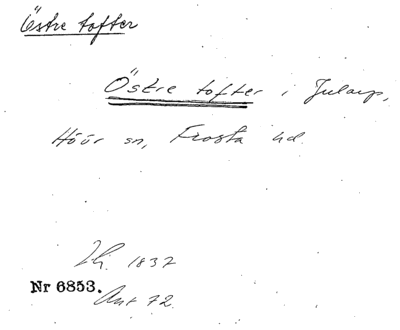 Östre tofter
Östre tofter i Jularp,
Höör sn, Frosta hd.
Lh. 1837
Nr 6853.
Ant 72.